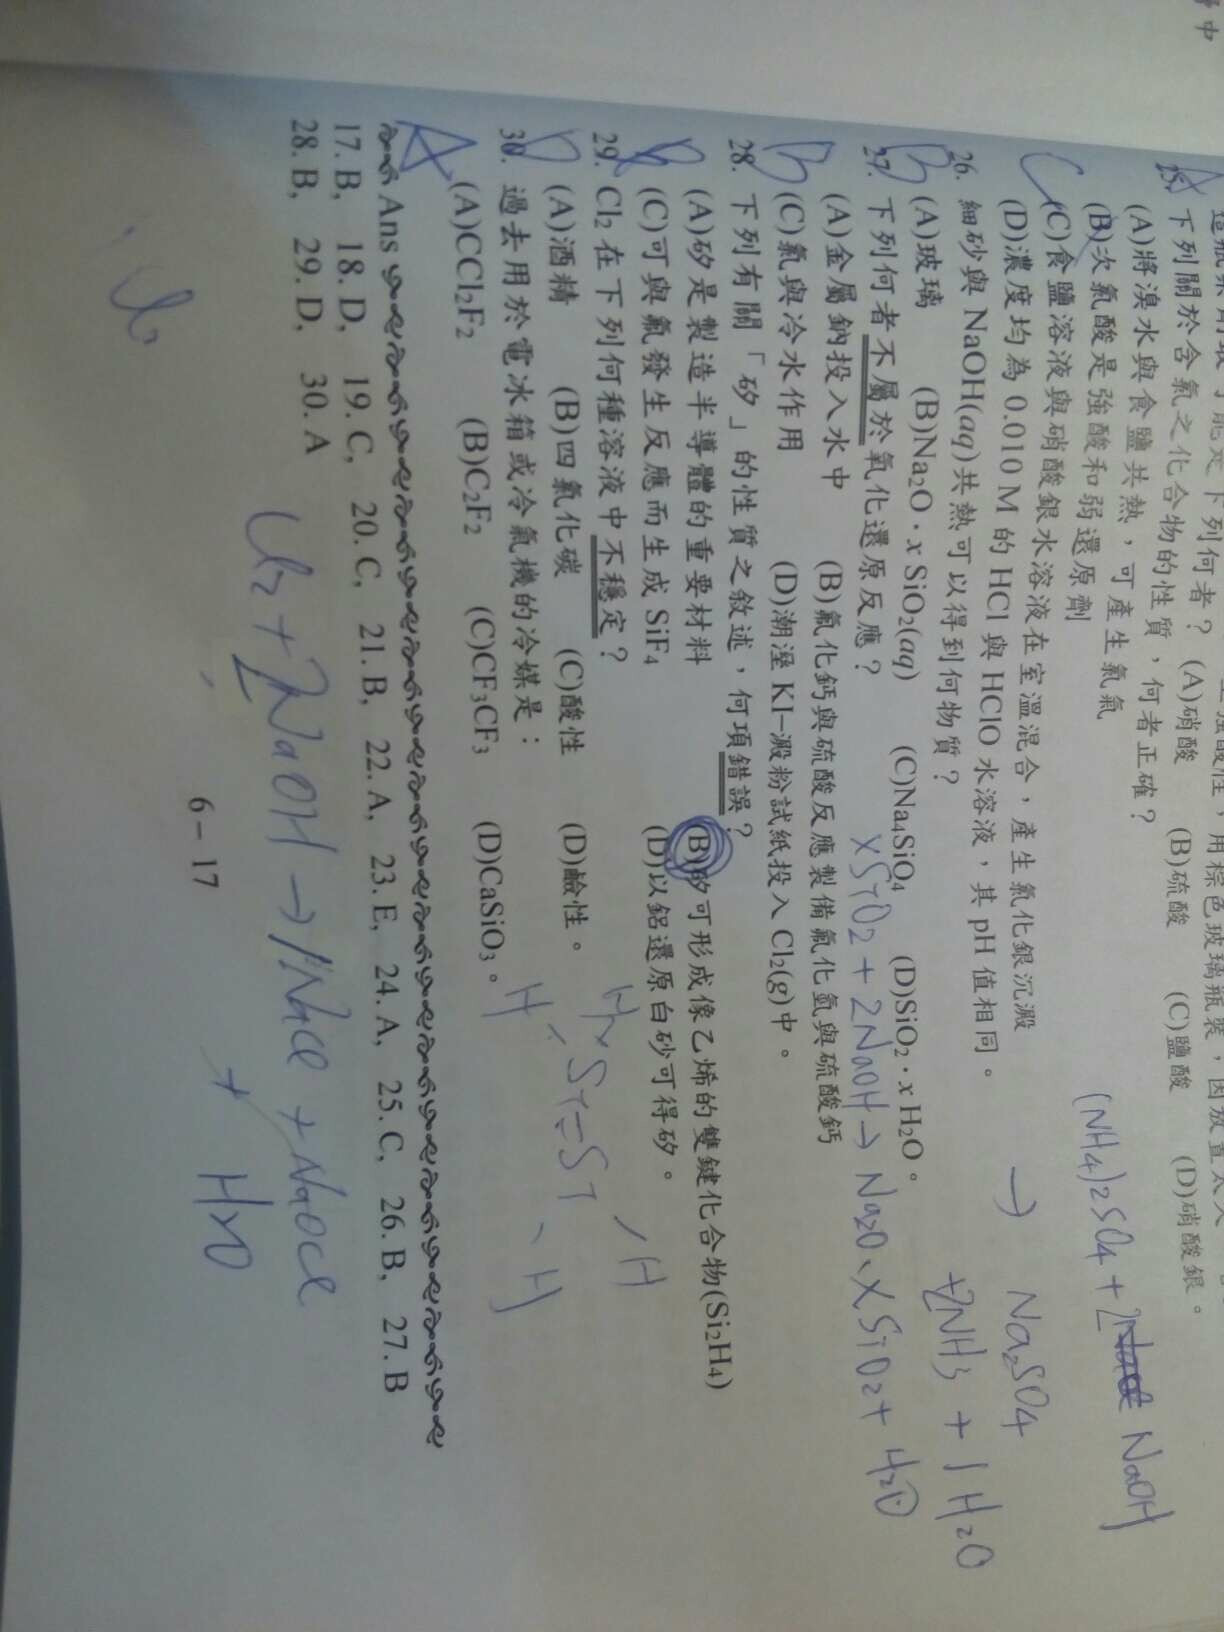 (A)硝酸 (B)硫酸 (C)鹽酸 (D)硝酸銀。
25. 下列關於含氯之化合物的性質，何者正確？
(A)將溴水與食鹽共熱，可產生氯氣
(B)次氯酸是強酸和弱還原劑
(C)食鹽溶液與硝酸銀水溶液在室溫混合，產生氯化銀沉澱
(D)濃度均為 0.010 M 的 HCl 與 HClO 水溶液，其 pH 值相同。
C
(NH4)2SO4 + 2 NaOH
→ Na2SO4
+2NH3 + 1 H2O
26. 細砂與 NaOH(aq)共熱可以得到何物質？
(A)玻璃 (B)Na2O · x SiO2(aq) (C)Na4SiO4 (D)SiO2 · x H2O。
B
xSiO2 + 2NaOH → Na2O · xSiO2 + H2O
27. 下列何者不屬於氧化還原反應？
(A)金屬鈉投入水中 (B)氟化鈣與硫酸反應製備氟化氫與硫酸鈣
(C)氯與冷水作用 (D)潮溼 KI–澱粉試紙投入 Cl2(g)中。
B
28. 下列有關「矽」的性質之敘述，何項錯誤？
(A)矽是製造半導體的重要材料 (B)矽可形成像乙烯的雙鍵化合物(Si2H4)
(C)可與氟發生反應而生成 SiF4 (D)以鋁還原白砂可得矽。
29. Cl2 在下列何種溶液中不穩定？
(A)酒精 (B)四氯化碳 (C)酸性 (D)鹼性。
D
H Si=Si H
H H
30. 過去用於電冰箱或冷氣機的冷媒是：
(A)CCl2F2 (B)C2F2 (C)CF3CF3 (D)CaSiO3。
A
Ans
17. B, 18. D, 19. C, 20. C, 21. B, 22. A, 23. E, 24. A, 25. C, 26. B, 27. B
28. B, 29. D, 30. A
Cl2 + 2NaOH → 1NaCl + NaOCl
+ H2O
6 – 17